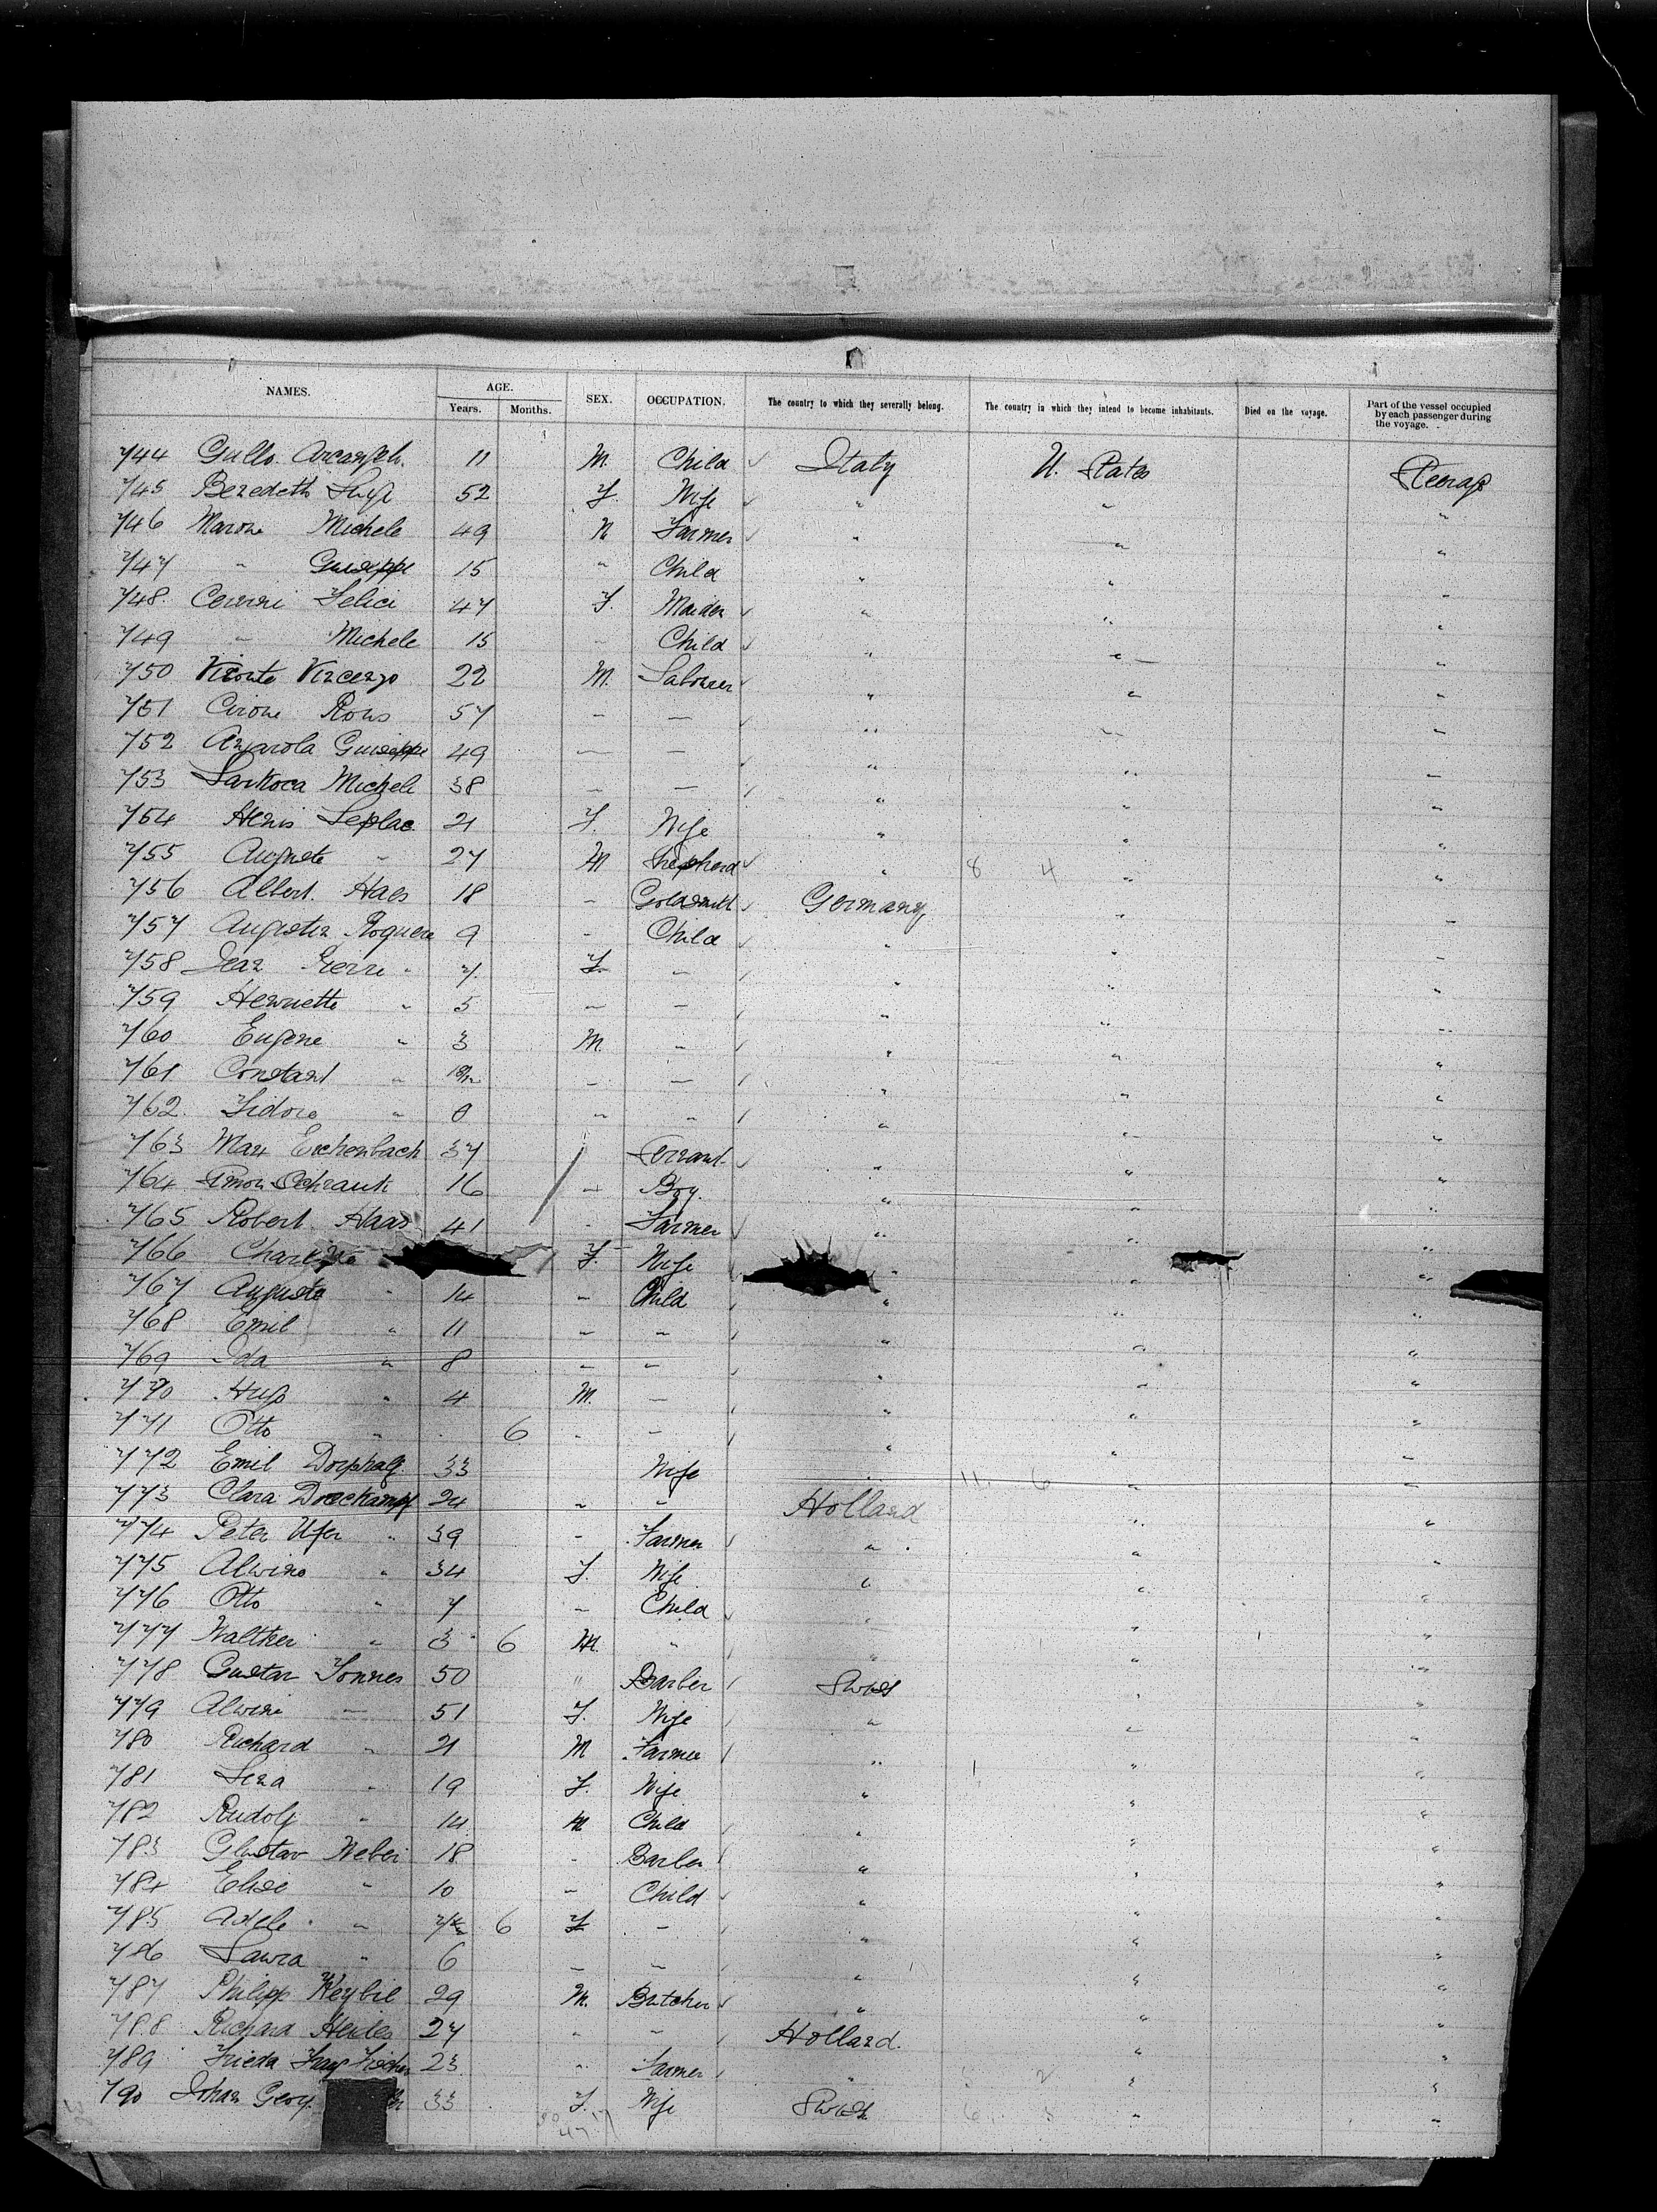 NAMES. AGE. SEX. OCCUPATION. The country to which they severally belong. The country in which they intend to become inhabitants. Died on the voyage. Part of the vessel occupied by each passenger during the voyage.
Years. Months.
744 Gullo Arcangelo 11 M. Child Italy U. States Steerage
745 Benedetti Luigi 52 F. Wife " " "
746 Marone Michele 49 M Farmer " " "
747 " Guiseppe 15 " Child " " "
748 Felici 47 F. Maiden " " "
749 " Michele 15 " Child " " "
750 Vicente Vincenzo 22 M. Labourer " " "
751 Cirone 57 " " " " "
752 Guiseppe 49 " " " " "
753 Michele 38 " " " " "
754 Henis Leplae 21 F. Wife " " "
755 Auguste " 27 M Shepherd " 8 4 " "
756 Albert Haes 18 " Goldsmith Germany " "
757 Augustin Roquere 9 " Child " " "
758 Jean Pierre " 7 F " " " "
759 Henriette " 5 " " " " "
760 Eugene " 3 M. " " " "
761 Constant " " " " " "
762 Isidore " 0 " " " " "
763 Max Eschenbach 37 Servant " " "
764 Simon Schrank 16 " Boy " " "
765 Robert Haas 41 " Farmer " " "
766 F. Wife " " "
767 Auguste " 14 " Child " " "
768 Emil " 11 " " " " "
769 Ida " 8 " " " " "
770 Hugo " 4 M. " " " "
771 Otto " 6 " " " " "
772 Emil 33 Wife " 11 6 " "
773 Clara 24 " " Holland " "
774 Peter Ufer " 39 " Farmer " " "
775 Alwine " 34 F. Wife " " "
776 Otto " 7 " Child " " "
777 Walther " 3 6 M. " " " "
778 Gustav Tonnes 50 " Barber Swiss " "
779 Alwine " 51 F. Wife " " "
780 Richard " 21 M Farmer " " "
781 Lina " 19 F. Wife " " "
782 Rudolf " 14 M Child " " "
783 Gustav Weber 18 " Barber " " "
784 Elise " 10 " Child " " "
785 Adele " 6 F " " " "
786 Laura " 6 " " " " "
787 Philipp 29 M. Butcher " " "
788 Richard 27 " " Holland " "
789 Frieda 23 " Farmer " " "
790 Johan Georg 33 F. Wife Swiss " "